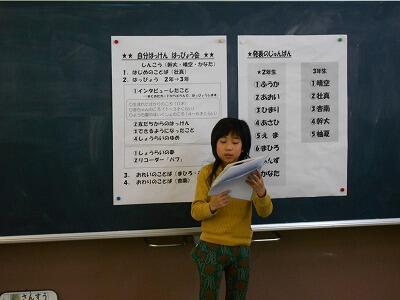 ★★ 自分はっけん はっぴょう会 ★★
しんこう（幹大・晴空・かなた）
1. はじめのことば（壮真）
2. はっぴょう 2年→3年
①インタビューしたこと
②友だちからのはっけん
③できるようになったこと
④しょうらいのゆめ
①しょうらいの夢
②リコーダー「パフ」
3. おれいのことば（まひろ
4. おわりのことば（杏南）
★発表のじゅんばん
★2年生
①ふうか
②あおい
③ひまり
④あさひ
⑤え ま
⑥まひろ
んず
かなた
3年生
①晴空
②壮真
③杏南
④幹大
⑤柚夏
さんすう